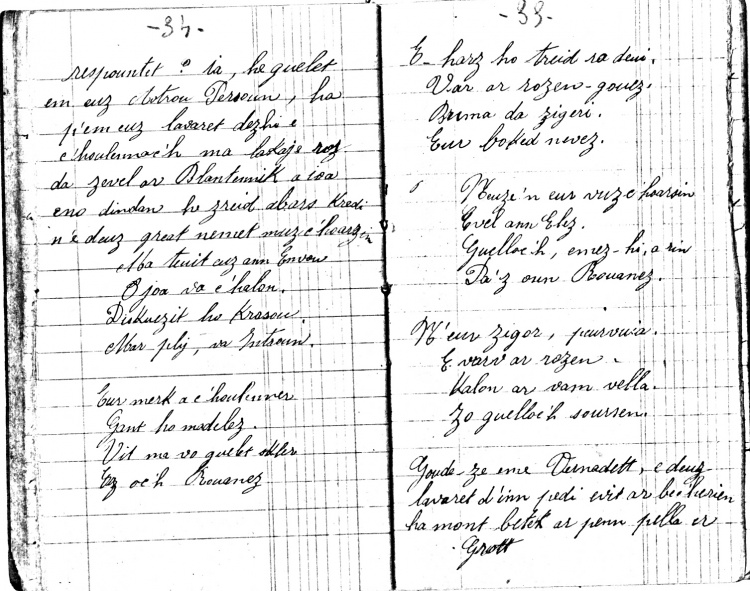 - 34 -
respountet : ia, he guelet
em euz Aotrou Persoun, ha
p'em euz lavaret dezhi e
c'houlennac'h ma lakaje roz
da zevel ar Blantennik a ioa
eno dindan he zreid abars Kredi
n'e deuz great nemet muzc'hoarzin
Ma tuit euz ann Envou
O joa va c'halon.
Diskuezit ho Krasou.
Mar plij, va Introun.
Eur merk a c'houlenner
Gant ho madelez.
Vit ma vo guelet skler
Ez oc'h Rouanez
- 33 -
E harz ho treid sa deui.
Var ar rozen-gouez.
Bruma da zigeri.
Eur boked nevez.
Neuze'n eur vuzc'hoarsin
Evel ann Elez.
Guelloc'h, emez-hi, a rin
Pa'z oun Rouanez.
N'eur zigor, peurvuia.
E varv ar rozen.
Kalon ar vam vella.
Zo guelloc'h soursen.
Gouda-ze eme Bernadett, e deuz
lavaret d'inn pedi evit ar bec'herien
ha mont betek ar penn pella er
Grott